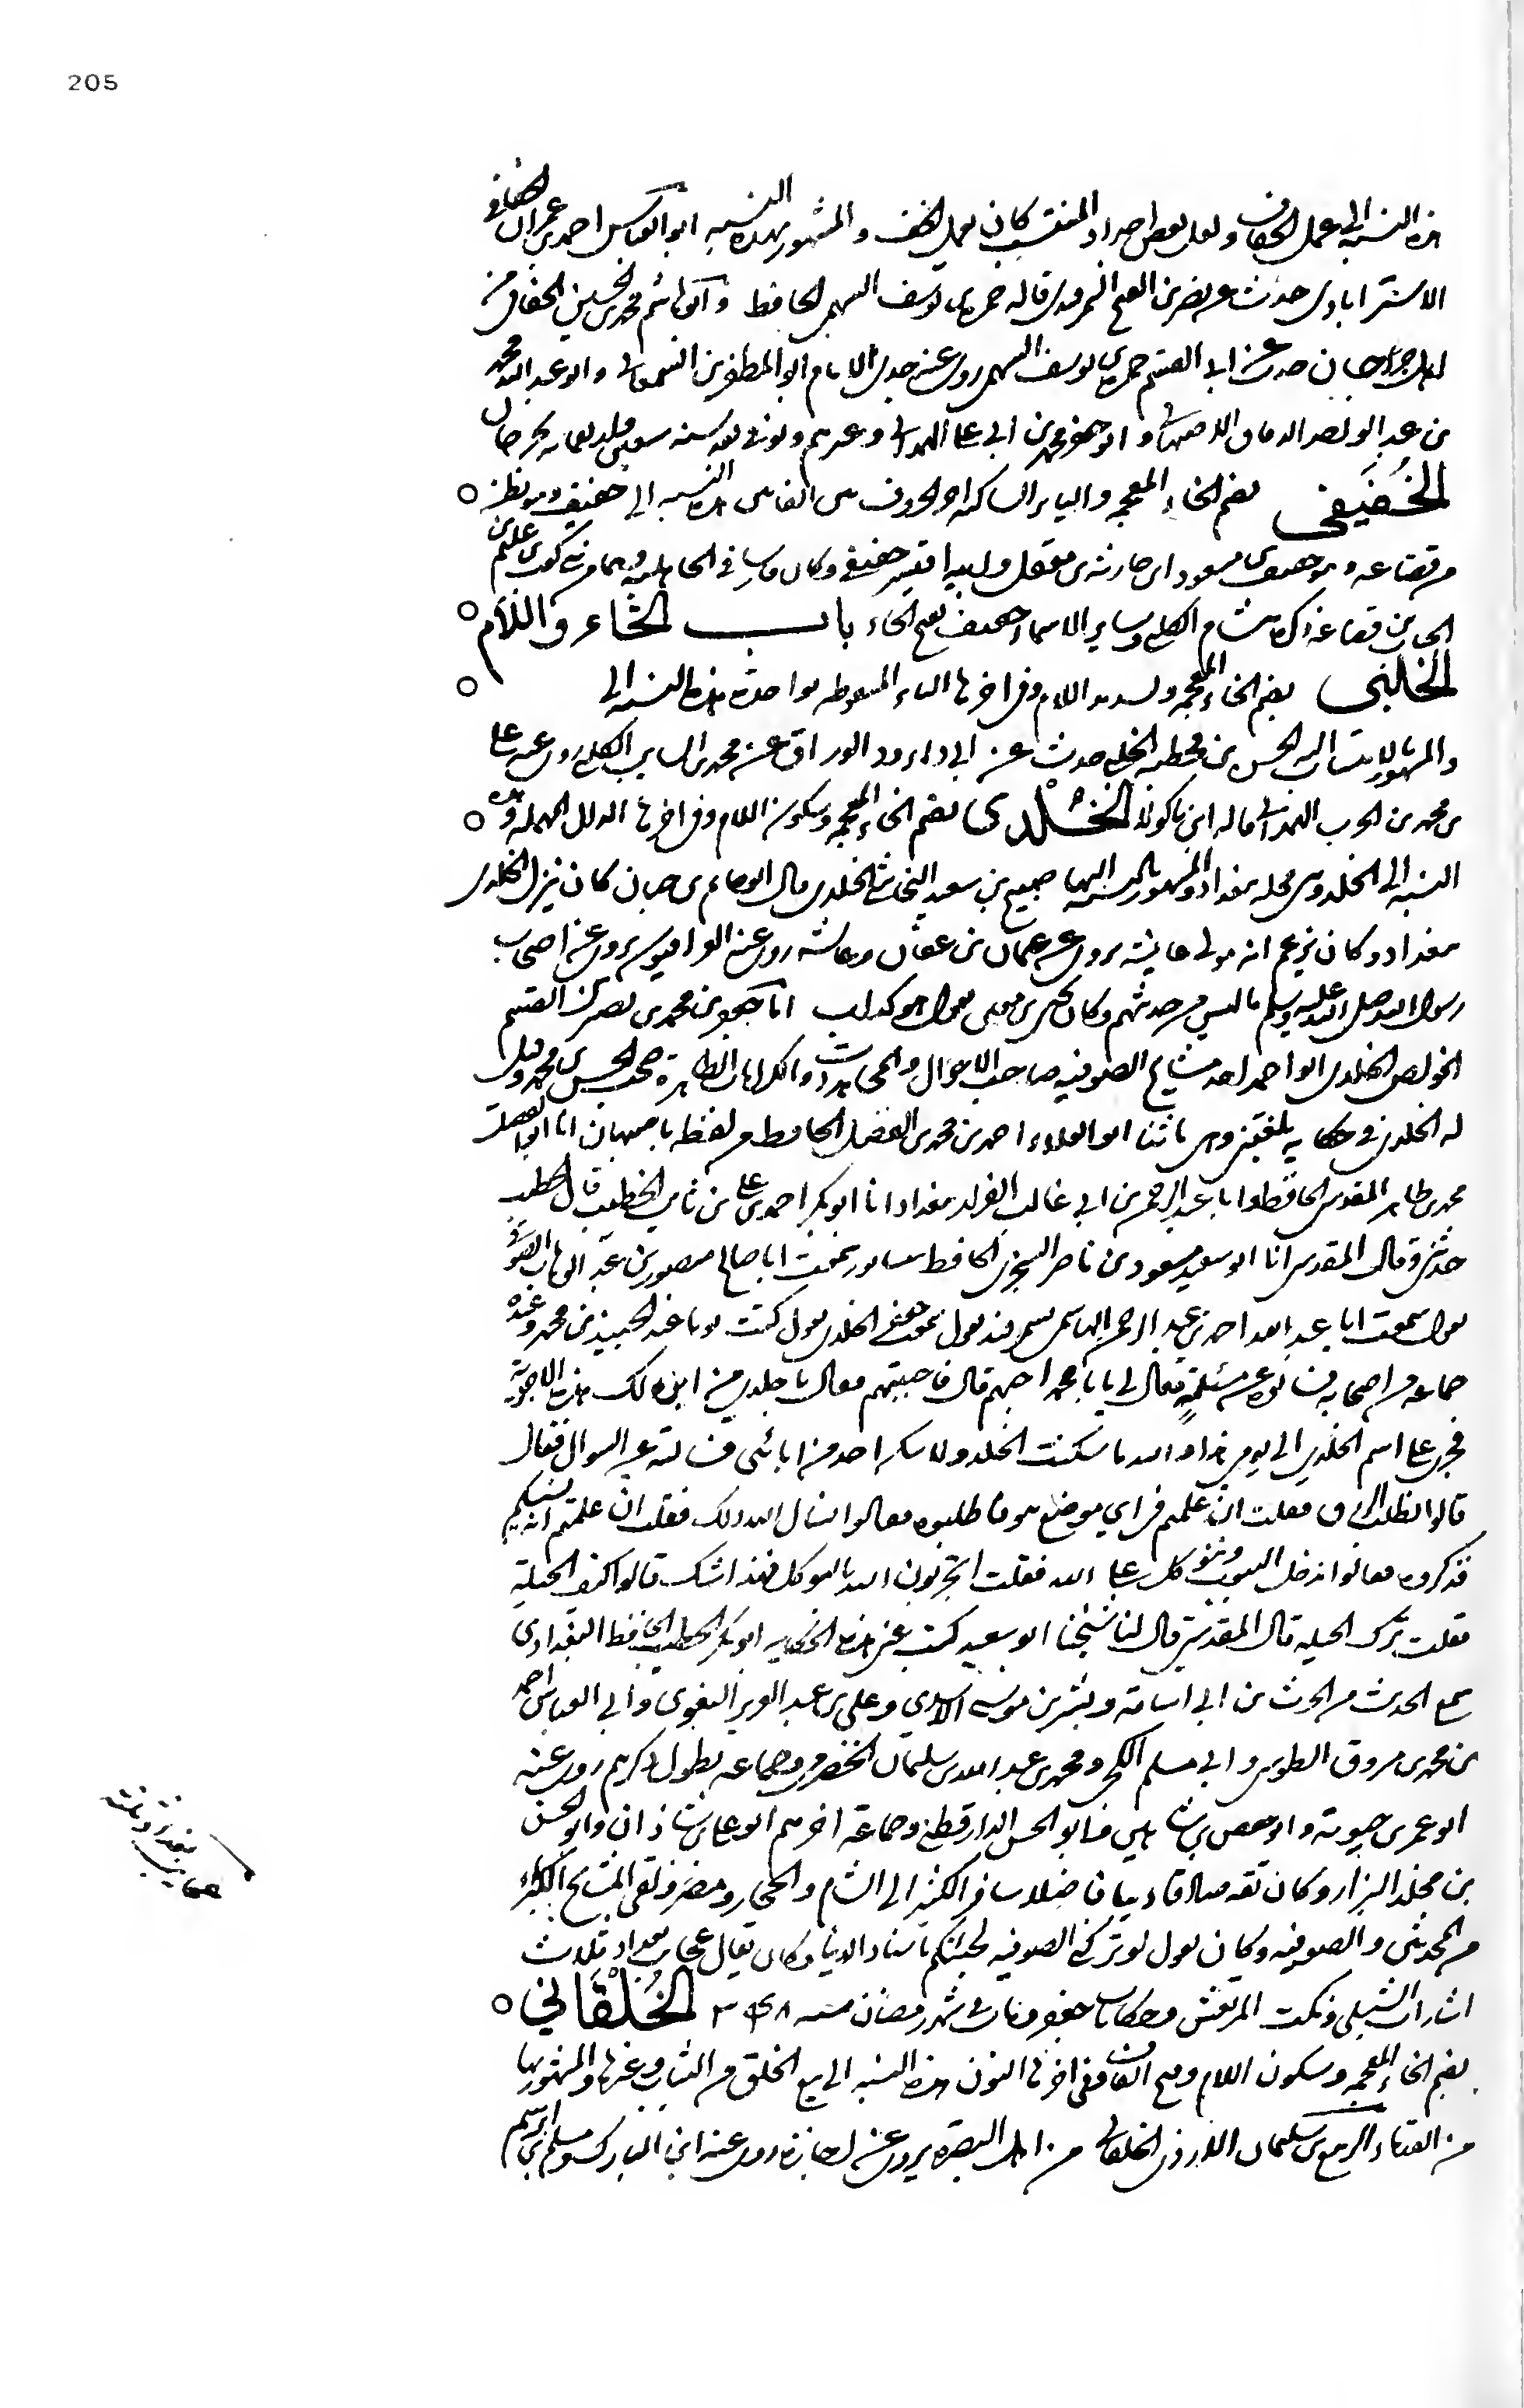 205
هذه النسبة الى عمل الخفاف ولعل بعض اجداد المنتسب كان يعمل الخف والمشهور بهذه النسبة ابو العباس احمد بن عمران الخفافي
الاستراباذي حدث عن نصر بن الفتح السمرقندي قاله حمزة بن يوسف السهمي الحافظ وابو هاشم محمد بن الحسين الخفافي من
اهل جرجان حدث عن ابي القسم حمزة بن يوسف السهمي روى عنه جدي الامام ابو المظفر بن السمعاني وابو عبد الله محمد
بن عبد الواحد الدقاق الاصبهاني وابو جعفر محمد بن ابي علي الهمداني وغيرهم وتوفي بعد سنة سبعين واربعمائة بجرجان
الخُفَيفي بضم الخاء المعجمة والياء الساكنة اخر الحروف بين الفائين هذه النسبة الى خفيف وهو بطن
من قضاعة وهو خفيف بن مسعود بن حارثة بن معقل وكان فارسا في الجاهلية
ذكره هشام الكلبي وساير الاسماء خفيف بفتح الخاء باب الخاء واللام
الخُلّبي بضم الخاء المعجمة وتشديد اللام وفي اخرها الباء المنقوطة بواحدة هذه النسبة الى
والمشهور بالانتساب اليه الحسن بن قحطبة الخلبي حدث عن ابي داود الوراق عن محمد بن السايب الكلبي روى عنه علي
بن محمد بن الحرب الهمداني قاله ابن ماكولا الخُلْدي بضم الخاء المعجمة وسكون اللام وفي اخرها الدال المهملة هذه
النسبة الى الخلد وهي محلة ببغداد والمشهور بالنسبة اليها صبيح بن سعيد النجاشي الخلدي قال ابو حاتم بن حبان كان ينزل الخلد
ببغداد وكان يزعم انه مولى عايشة يروي عن عثمان بن عفان وعايشة روى عنه العراقيون يروي عن اصحاب
رسول الله صلى الله عليه وسلم ما ليس من حديثهم وكان يحيى بن معين يقول هو كذاب اما جعفر بن محمد بن نصير بن القسم
الخواص الخلدي ابو محمد احد مشايخ الصوفية صاحب الاحوال والمجاهدات والكرامات الظاهرة صحب الجنيد بن محمد وقيل
له الخلدي في حكاية بلغتني وهي ما ثنا ابو العلاء احمد بن محمد بن الفضل الحافظ من لفظه باصبهان انا ابو الفضل
محمد بن طاهر المقدسي الحافظ وانا عبد الرحمن بن ابي غالب القزاز ببغداد انا ابو بكر احمد بن علي بن ثابت الخطيب قال الخطيب
حدثني وقال المقدسي انا ابو سعيد مسعود بن ناصر السجزي الحافظ سمعت ابا صالح منصور بن عبد الوهاب الصوفي
يقول سمعت ابا عبد الله احمد بن عبد الرحمن الهاشمي بسمرقند يقول سمعت جعفر الخلدي يقول كنت يوما عند الجنيد بن محمد وعنده
جماعة من اصحابه فسالوه عن مسئلة فقال لي يابا محمد اجبهم قال فاجبتهم فقال يا خلدي من اين لك هذه الاجوبة
فجرى علي اسم الخلدي الى يومي هذا والله ما سكنت الخلد ولا سكن احد من ابائي فسالته عن السوال فقال
قالوا انطلب الرزق فقلت ان علمتم في اي موضع هو فاطلبوه فقالوا نسال الله ذلك فقلت ان علمتم انه ينسيكم
فذكروه فقالوا ندخل البيوت ونتوكل على الله فقلت اتجربون الله بالتوكل فهذا شك قالوا كيف الحيلة
فقلت ترك الحيلة قال المقدسي قال لنا شيخنا ابو سعيد كتب عني هذه الحكاية ابو بكر الخطيب الحافظ البغدادي
سمع الحديث من الحرث بن ابي اسامة وبشر بن موسى الاسدي وعلي بن عبد العزيز البغوي وابي العباس احمد
بن محمد بن مسروق الطوسي وابي مسلم الكجي ومحمد بن عبد الله بن سليمان الحضرمي وجماعة يطول ذكرهم روى عنه
ابو عمر بن حيوية وابو حفص بن شاهين وابو الحسن الدارقطني وجماعة اخرهم ابو علي بن شاذان وابو الحسن
بن مخلد البزاز وكان ثقة صادقا دينا فاضلا سافر الكثير الى الشام والحجاز ومصر ولقي المشايخ الكبراء
من المحدثين والصوفية وكان يقول لو تركني الصوفية لجئتكم باسناد الدنيا وكان يقال عجايب بغداد ثلاث
اشارات الشبلي ونكت المرتعش وحكايات جعفر ومات في شهر رمضان سنة ٣٤٨ الخُلْقَاني
بضم الخاء المعجمة وسكون اللام وفتح القاف وفي اخرها النون هذه النسبة الى بيع الخلق من الثياب وغيرها والمشهور بها
من القدماء الربيع بن سليمان الازدي الخلقاني من اهل البصرة يروي عن روى عنه ابن المبارك ومسلم بن ابرهيم
عجايب
بغداد ثلاث